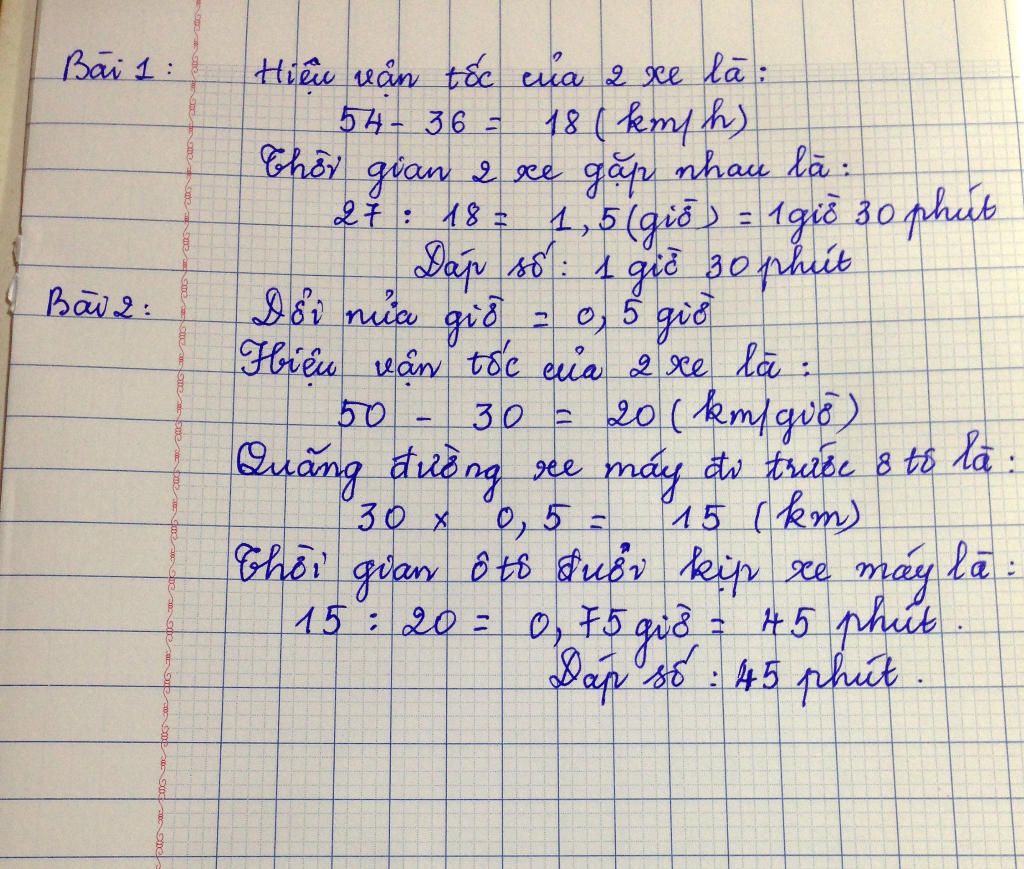 Bài 1: Hiệu vận tốc của 2 xe là:
54 - 36 = 18 (km/h)
Thời gian 2 xe gặp nhau là:
27 : 18 = 1,5 (giờ) = 1 giờ 30 phút
Đáp số: 1 giờ 30 phút
Bài 2: Đổi nửa giờ = 0,5 giờ
Hiệu vận tốc của 2 xe là:
50 - 30 = 20 (km/giờ)
Quãng đường xe máy đi trước ô tô là:
30 x 0,5 = 15 (km)
Thời gian ô tô đuổi kịp xe máy là:
15 : 20 = 0,75 giờ = 45 phút.
Đáp số: 45 phút.